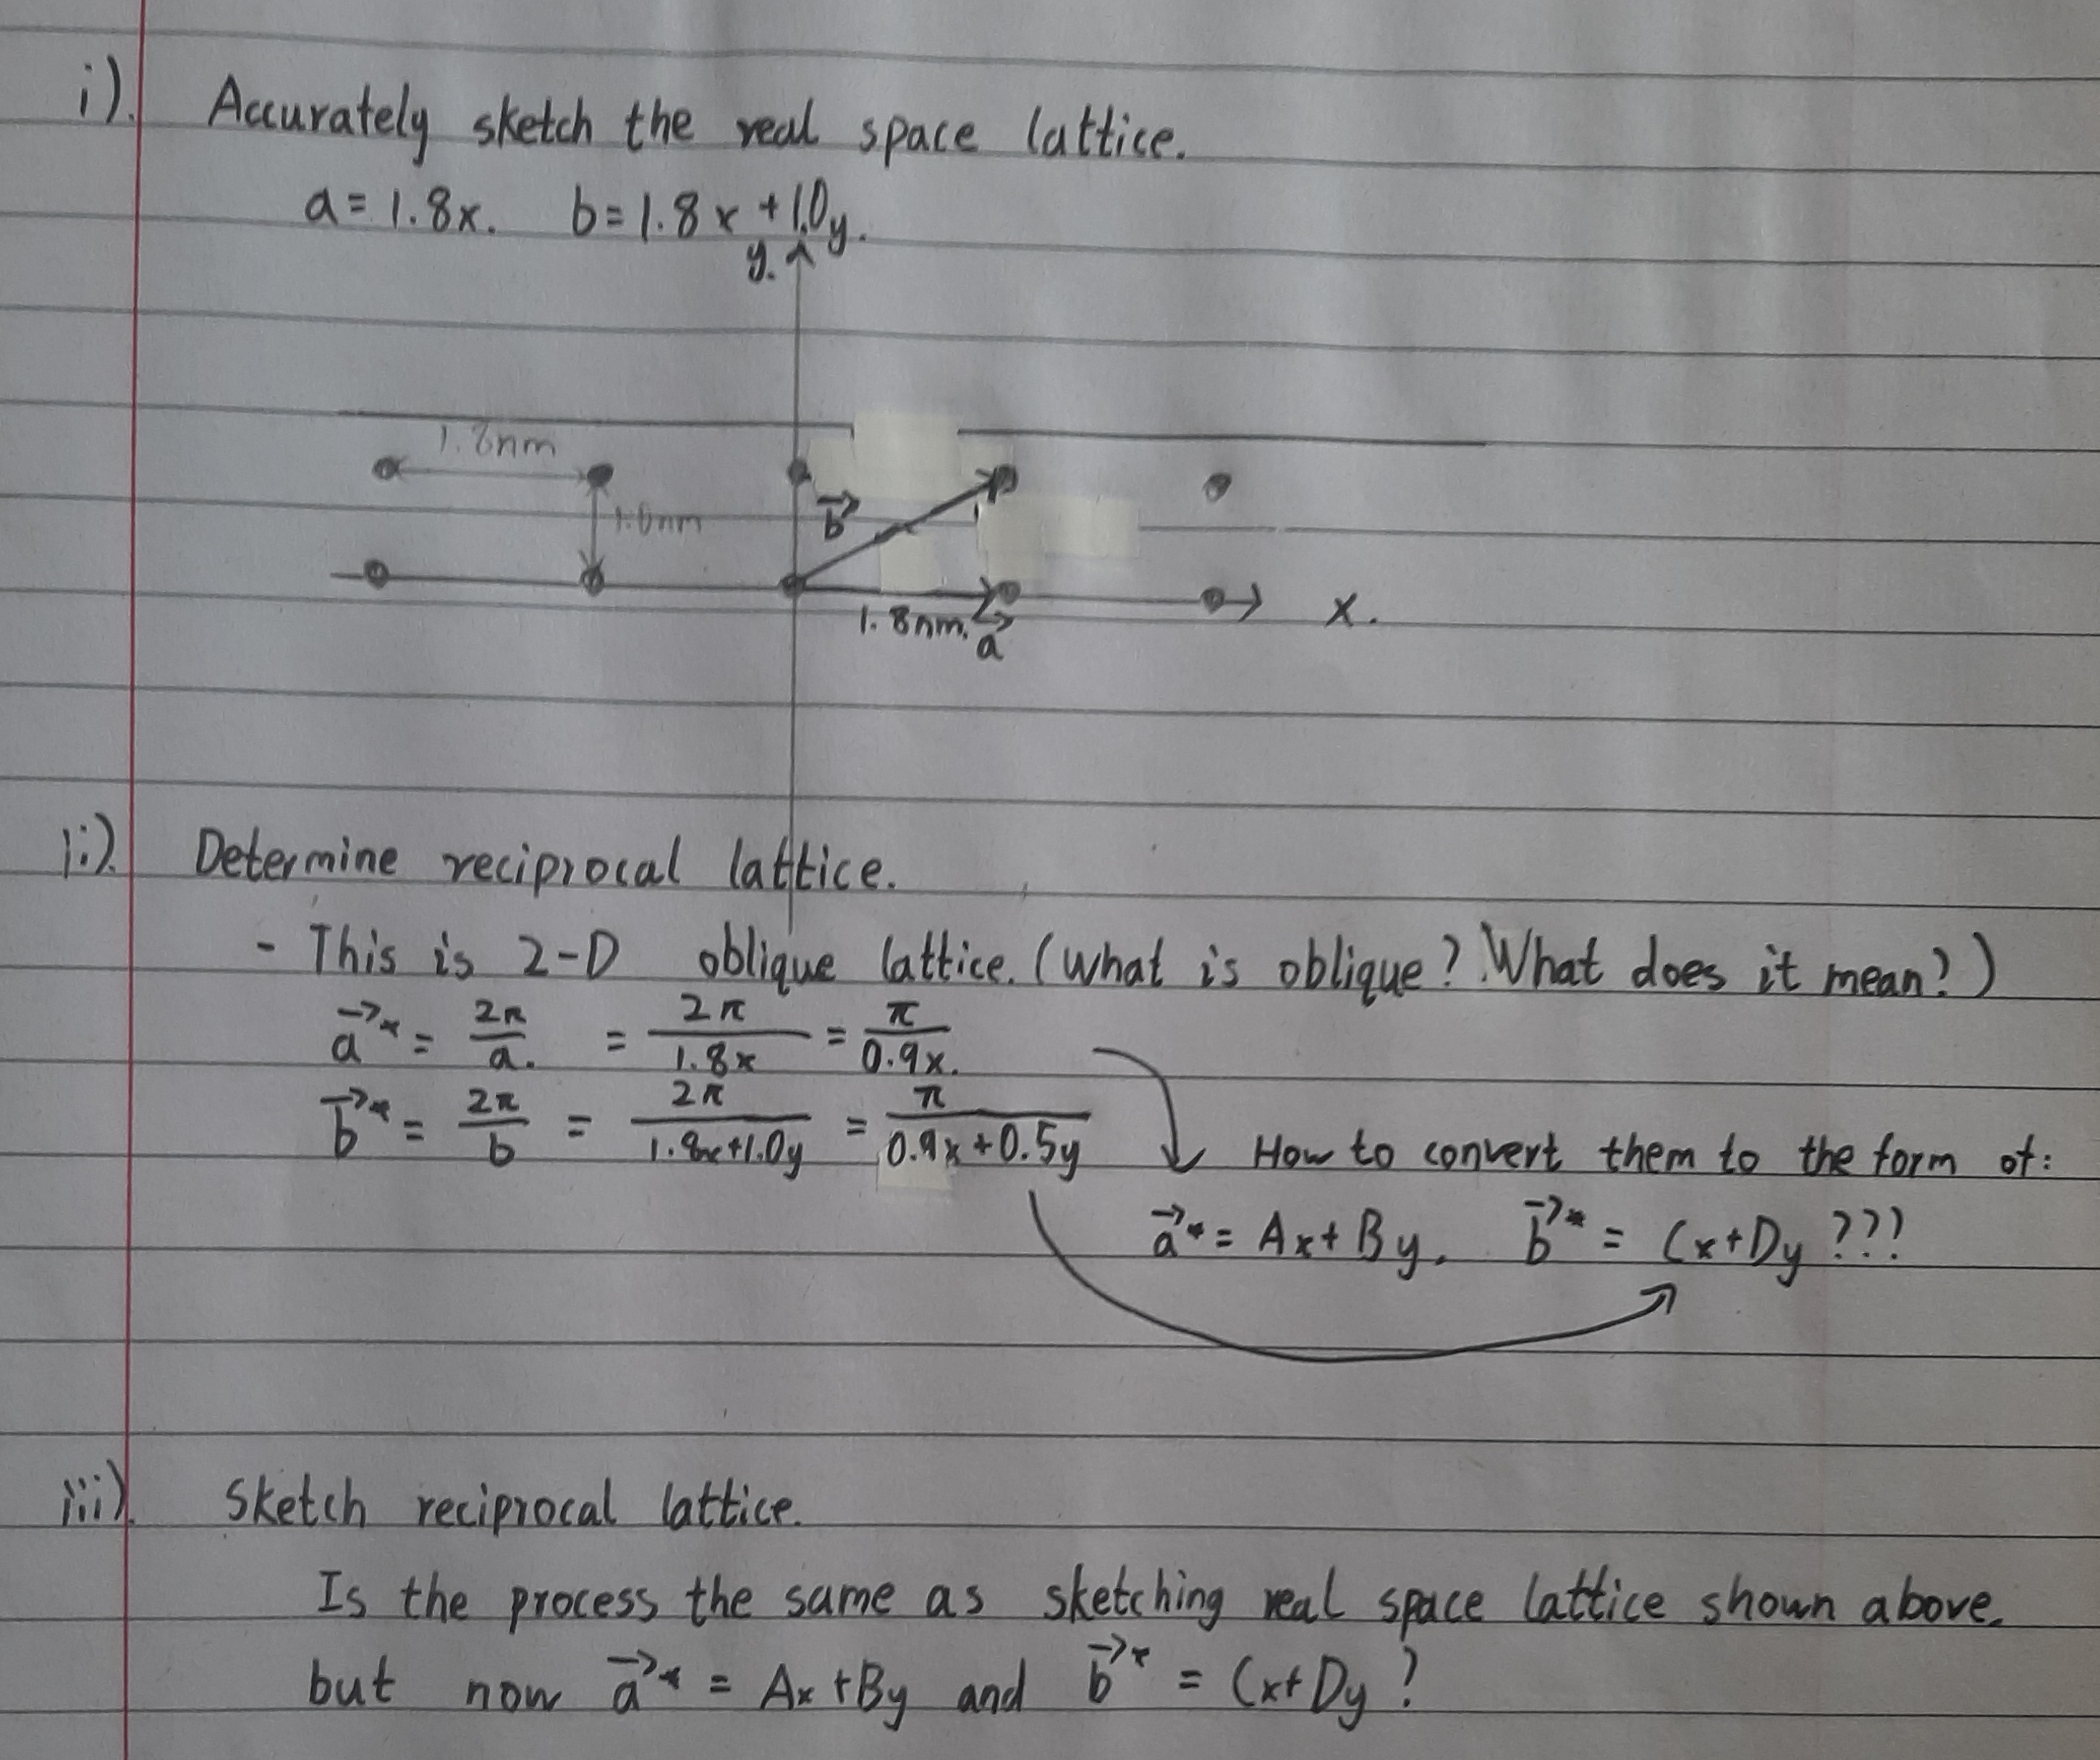 i). Accurately sketch the real space lattice.
a = 1.8x. b = 1.8x + 1.0y.
y.
1.8nm
1.0nm
b⃗
1.8nm. a⃗
x.
ii). Determine reciprocal lattice.
- This is 2-D oblique lattice. (What is oblique? What does it mean?)
a⃗* = 2π/a. = 2π/1.8x = π/0.9x.
b⃗* = 2π/b = 2π/1.8x+1.0y = π/0.9x+0.5y
How to convert them to the form of:
a⃗* = Ax + By. b⃗* = Cx+Dy ???
iii). Sketch reciprocal lattice.
Is the process the same as sketching real space lattice shown above.
but now a⃗* = Ax+By and b⃗* = Cx+Dy ?